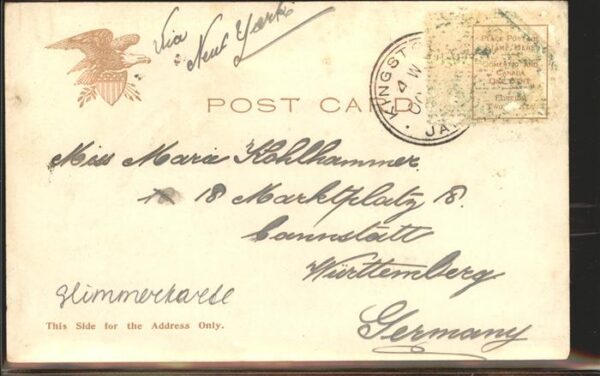 Via
New York
POST CARD
KINGSTO
PLACE POSTAGE
STAMP HERE
DOMESTIC AND
CANADA
ONE CENT
FOREIGN
TWO CENTS
4 W
JA
Miss Maria Kohlhammer
18 Marktplatz 18.
Cannstatt
Württemberg
Germany
Glimmerkarte
This Side for the Address Only.